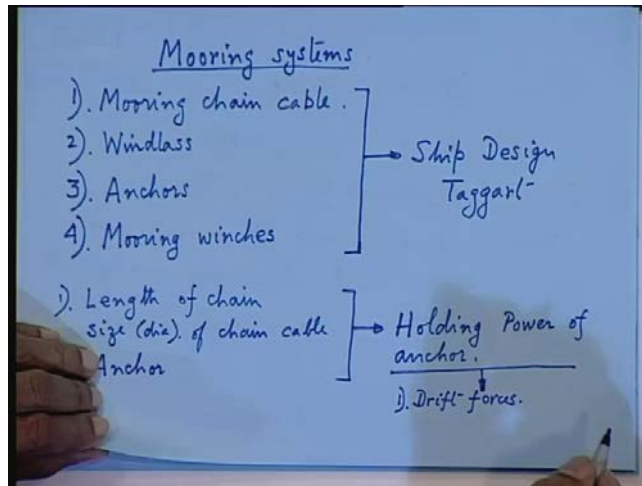 Mooring systems
1). Mooring chain cable.
2). Windlass
3). Anchors
4). Mooring winches
Ship Design
Taggart
1). Length of chain
size (dia). of chain cable
Anchor
Holding Power of
anchor.
1). Drift forces.